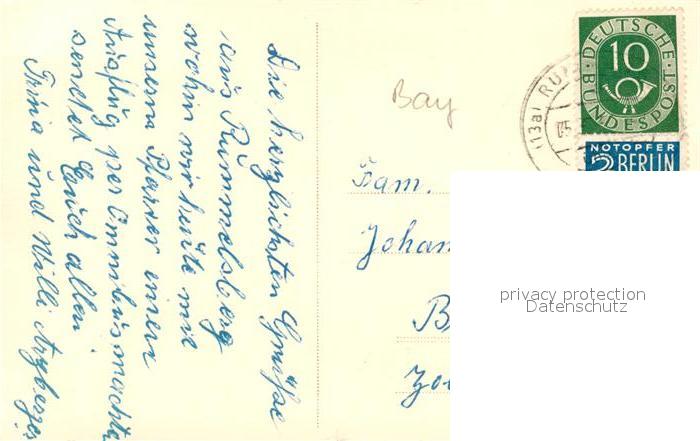 Die herzlichsten Grüße
aus Rummelsberg
wohin wir heute mit
unserm Pfarrer einen
Ausflug per Omnibus machten
sendet Euch allen
Irma und Willi
Bay
Fam.
Joham
B
(13a) RU
DEUTSCHE
10
BUNDESPOST
NOTOPFER
2 BERLIN
privacy protection
Datenschutz